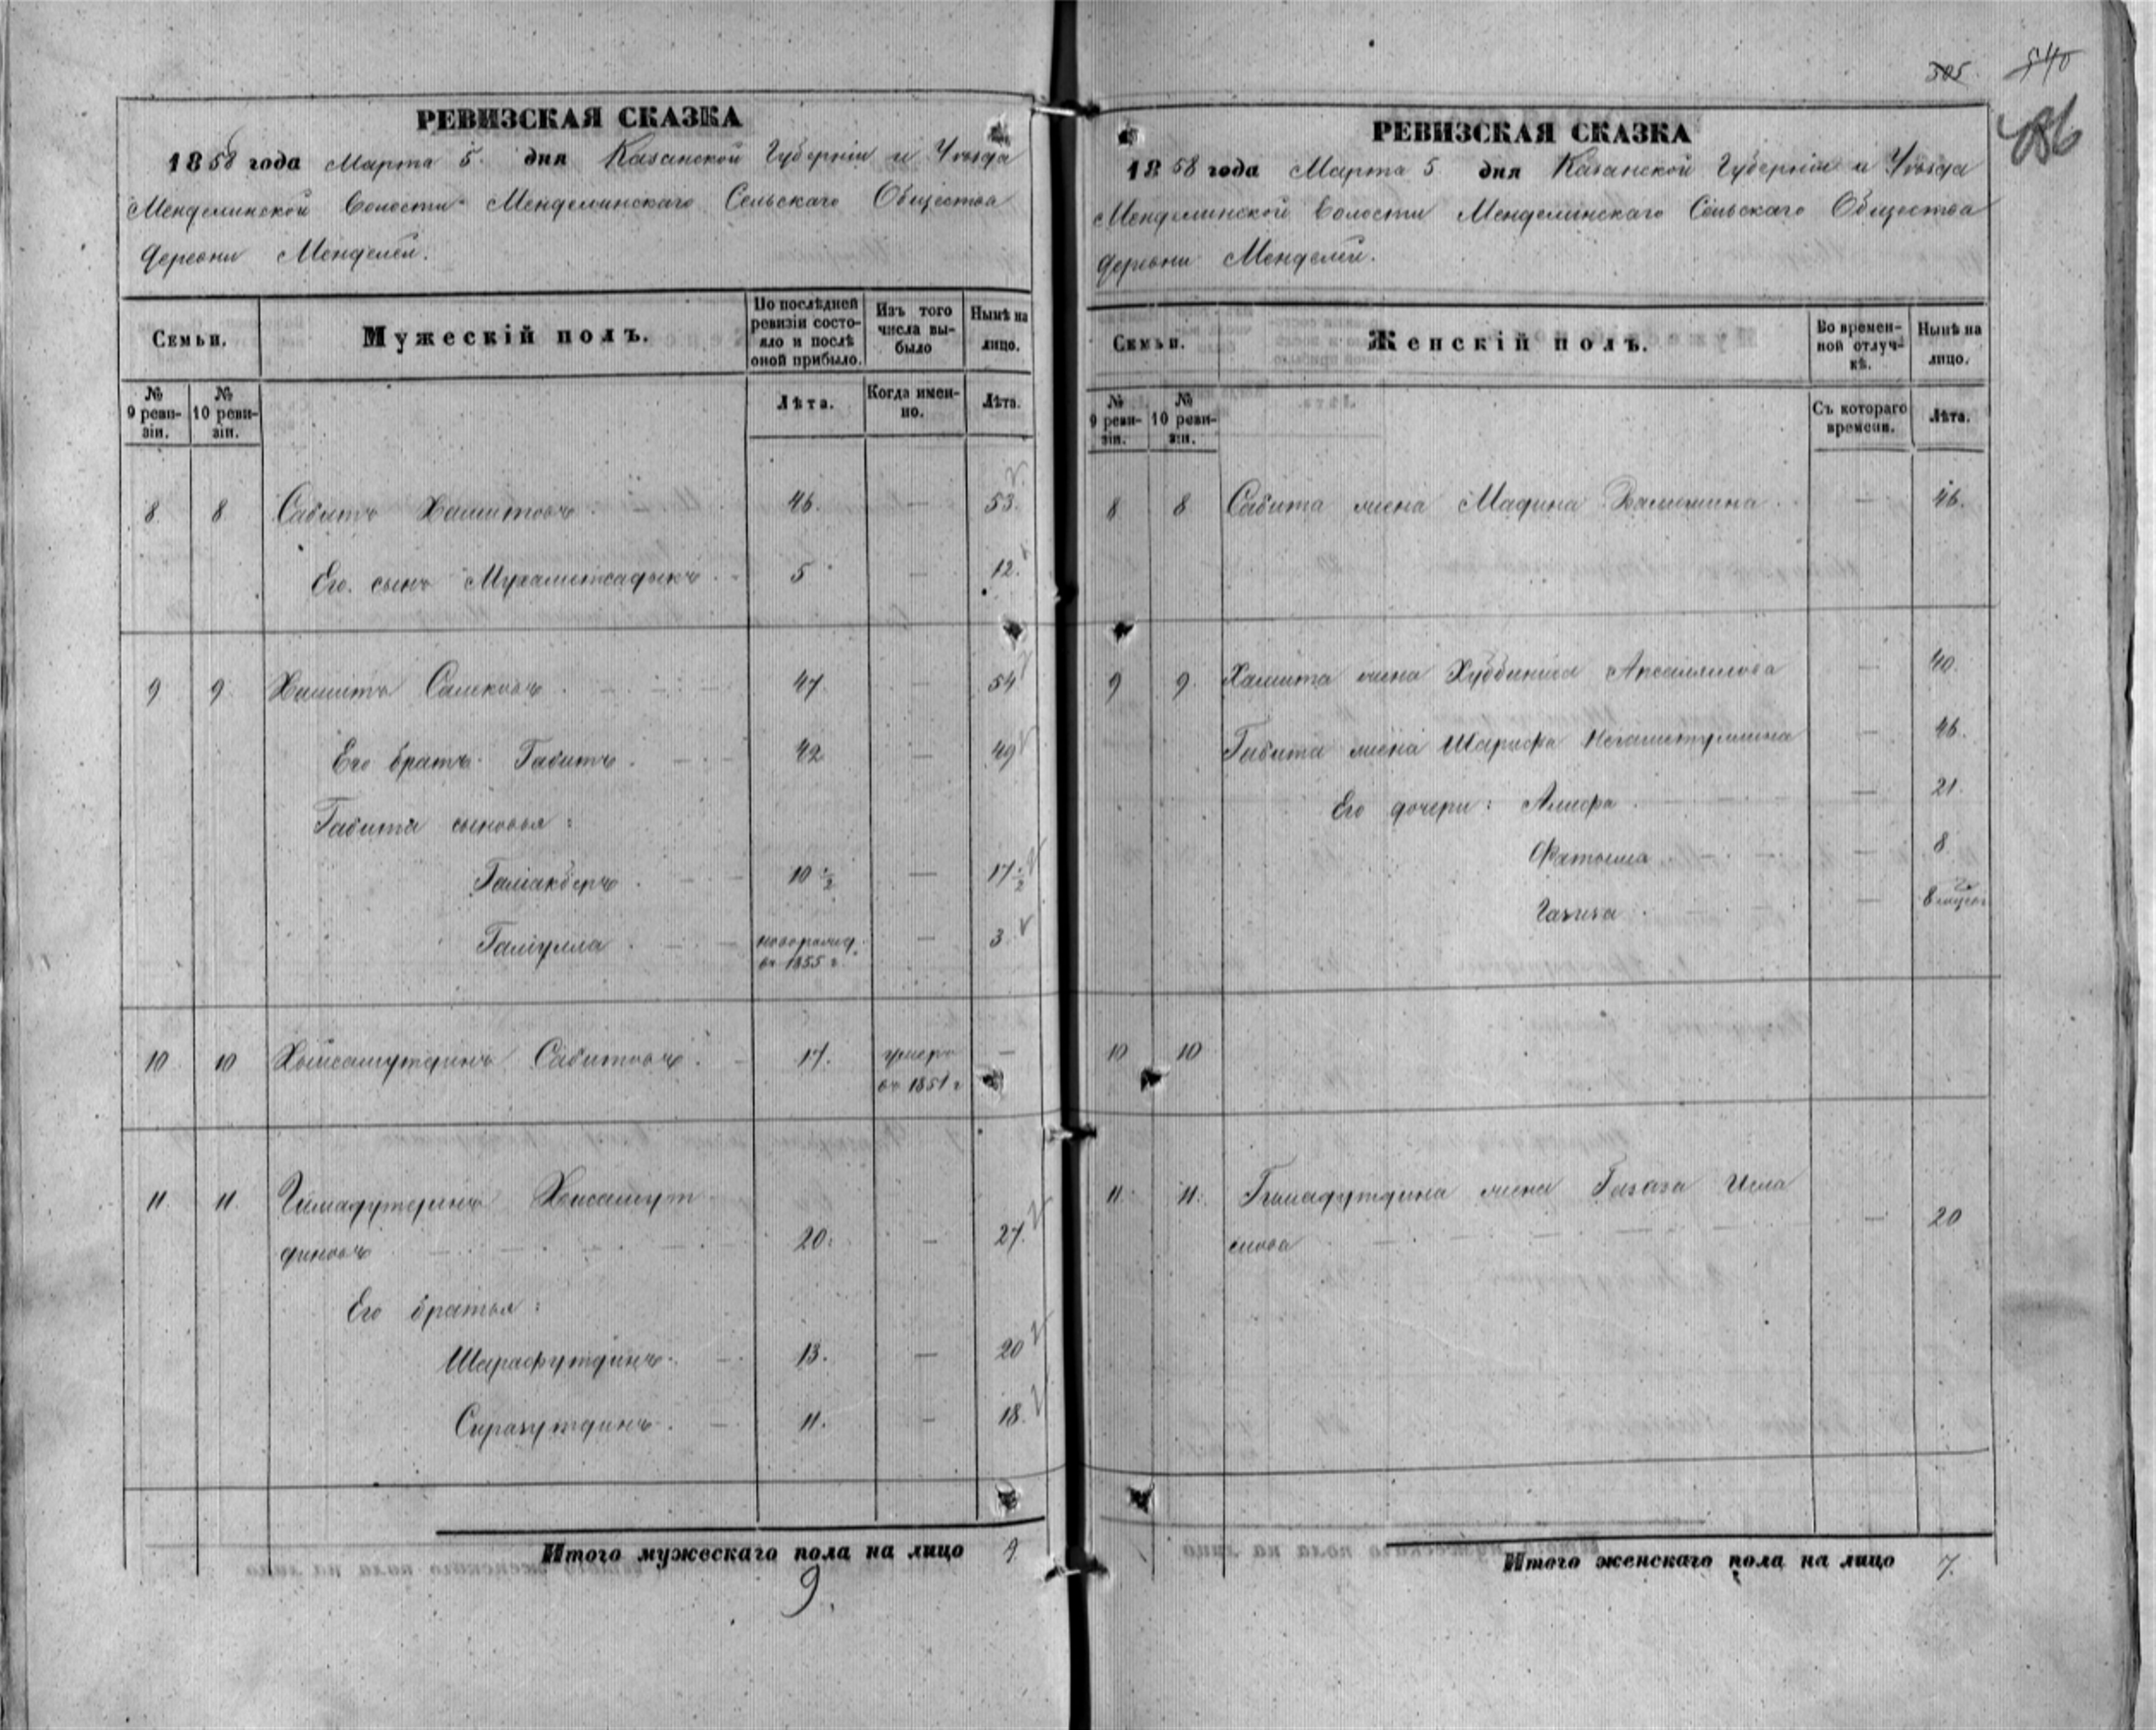 РЕВИЗСКАЯ СКАЗКА
1858 года Марта 5. дня Казанской Губерніи и Уѣзда
Менделинской Волости Менделинскаго Сельскаго Общества
деревни Менделей.
Семьи.
Мужескій полъ.
По послѣдней ревизіи состояло и послѣ оной прибыло.
Изъ того числа выбыло
Нынѣ на лицо.
№ 9 ревизіи.
№ 10 ревизіи.
Лѣта.
Когда именно.
Лѣта.
8 8 Сабитъ Хамитовъ 46. — 53.
Его сынъ Мухаметсадыкъ 5 — 12.
9 9 Хамитъ Салиховъ 47 — 54
Его братъ Габитъ 42 — 49
Габита сыновья:
Галіакберъ 10 ½ — 17 ½
Галіулла новорожд. въ 1855 г. — 3
10 10 Хисамутдинъ Сабитовъ 17. умеръ въ 1851 г —
11 11 Гимадутдинъ Хисамут
диновъ 20. — 27.
Его братья:
Шарафутдинъ 13. — 20
Сиразутдинъ 11. — 18.
Итого мужескаго пола на лицо 9.
9.
305
540
РЕВИЗСКАЯ СКАЗКА
1858 года Марта 5 дня Казанской Губерніи и Уѣзда
Менделинской Волости Менделинскаго Сельскаго Общества
деревни Менделей.
Семьи.
Женскій полъ.
Во временной отлучкѣ.
Нынѣ на лицо.
№ 9 ревизіи.
№ 10 ревизіи.
Съ котораго времени.
Лѣта.
8 8 Сабита жена Мадина — 46.
9 9 Хамита жена — 40.
Габита жена Шарифа — 46.
Его дочери: Алифа — 21.
Фатыма — 8
Газиза — 8
10 10
11. 11. жена
— 20
Итого женскаго пола на лицо 7.